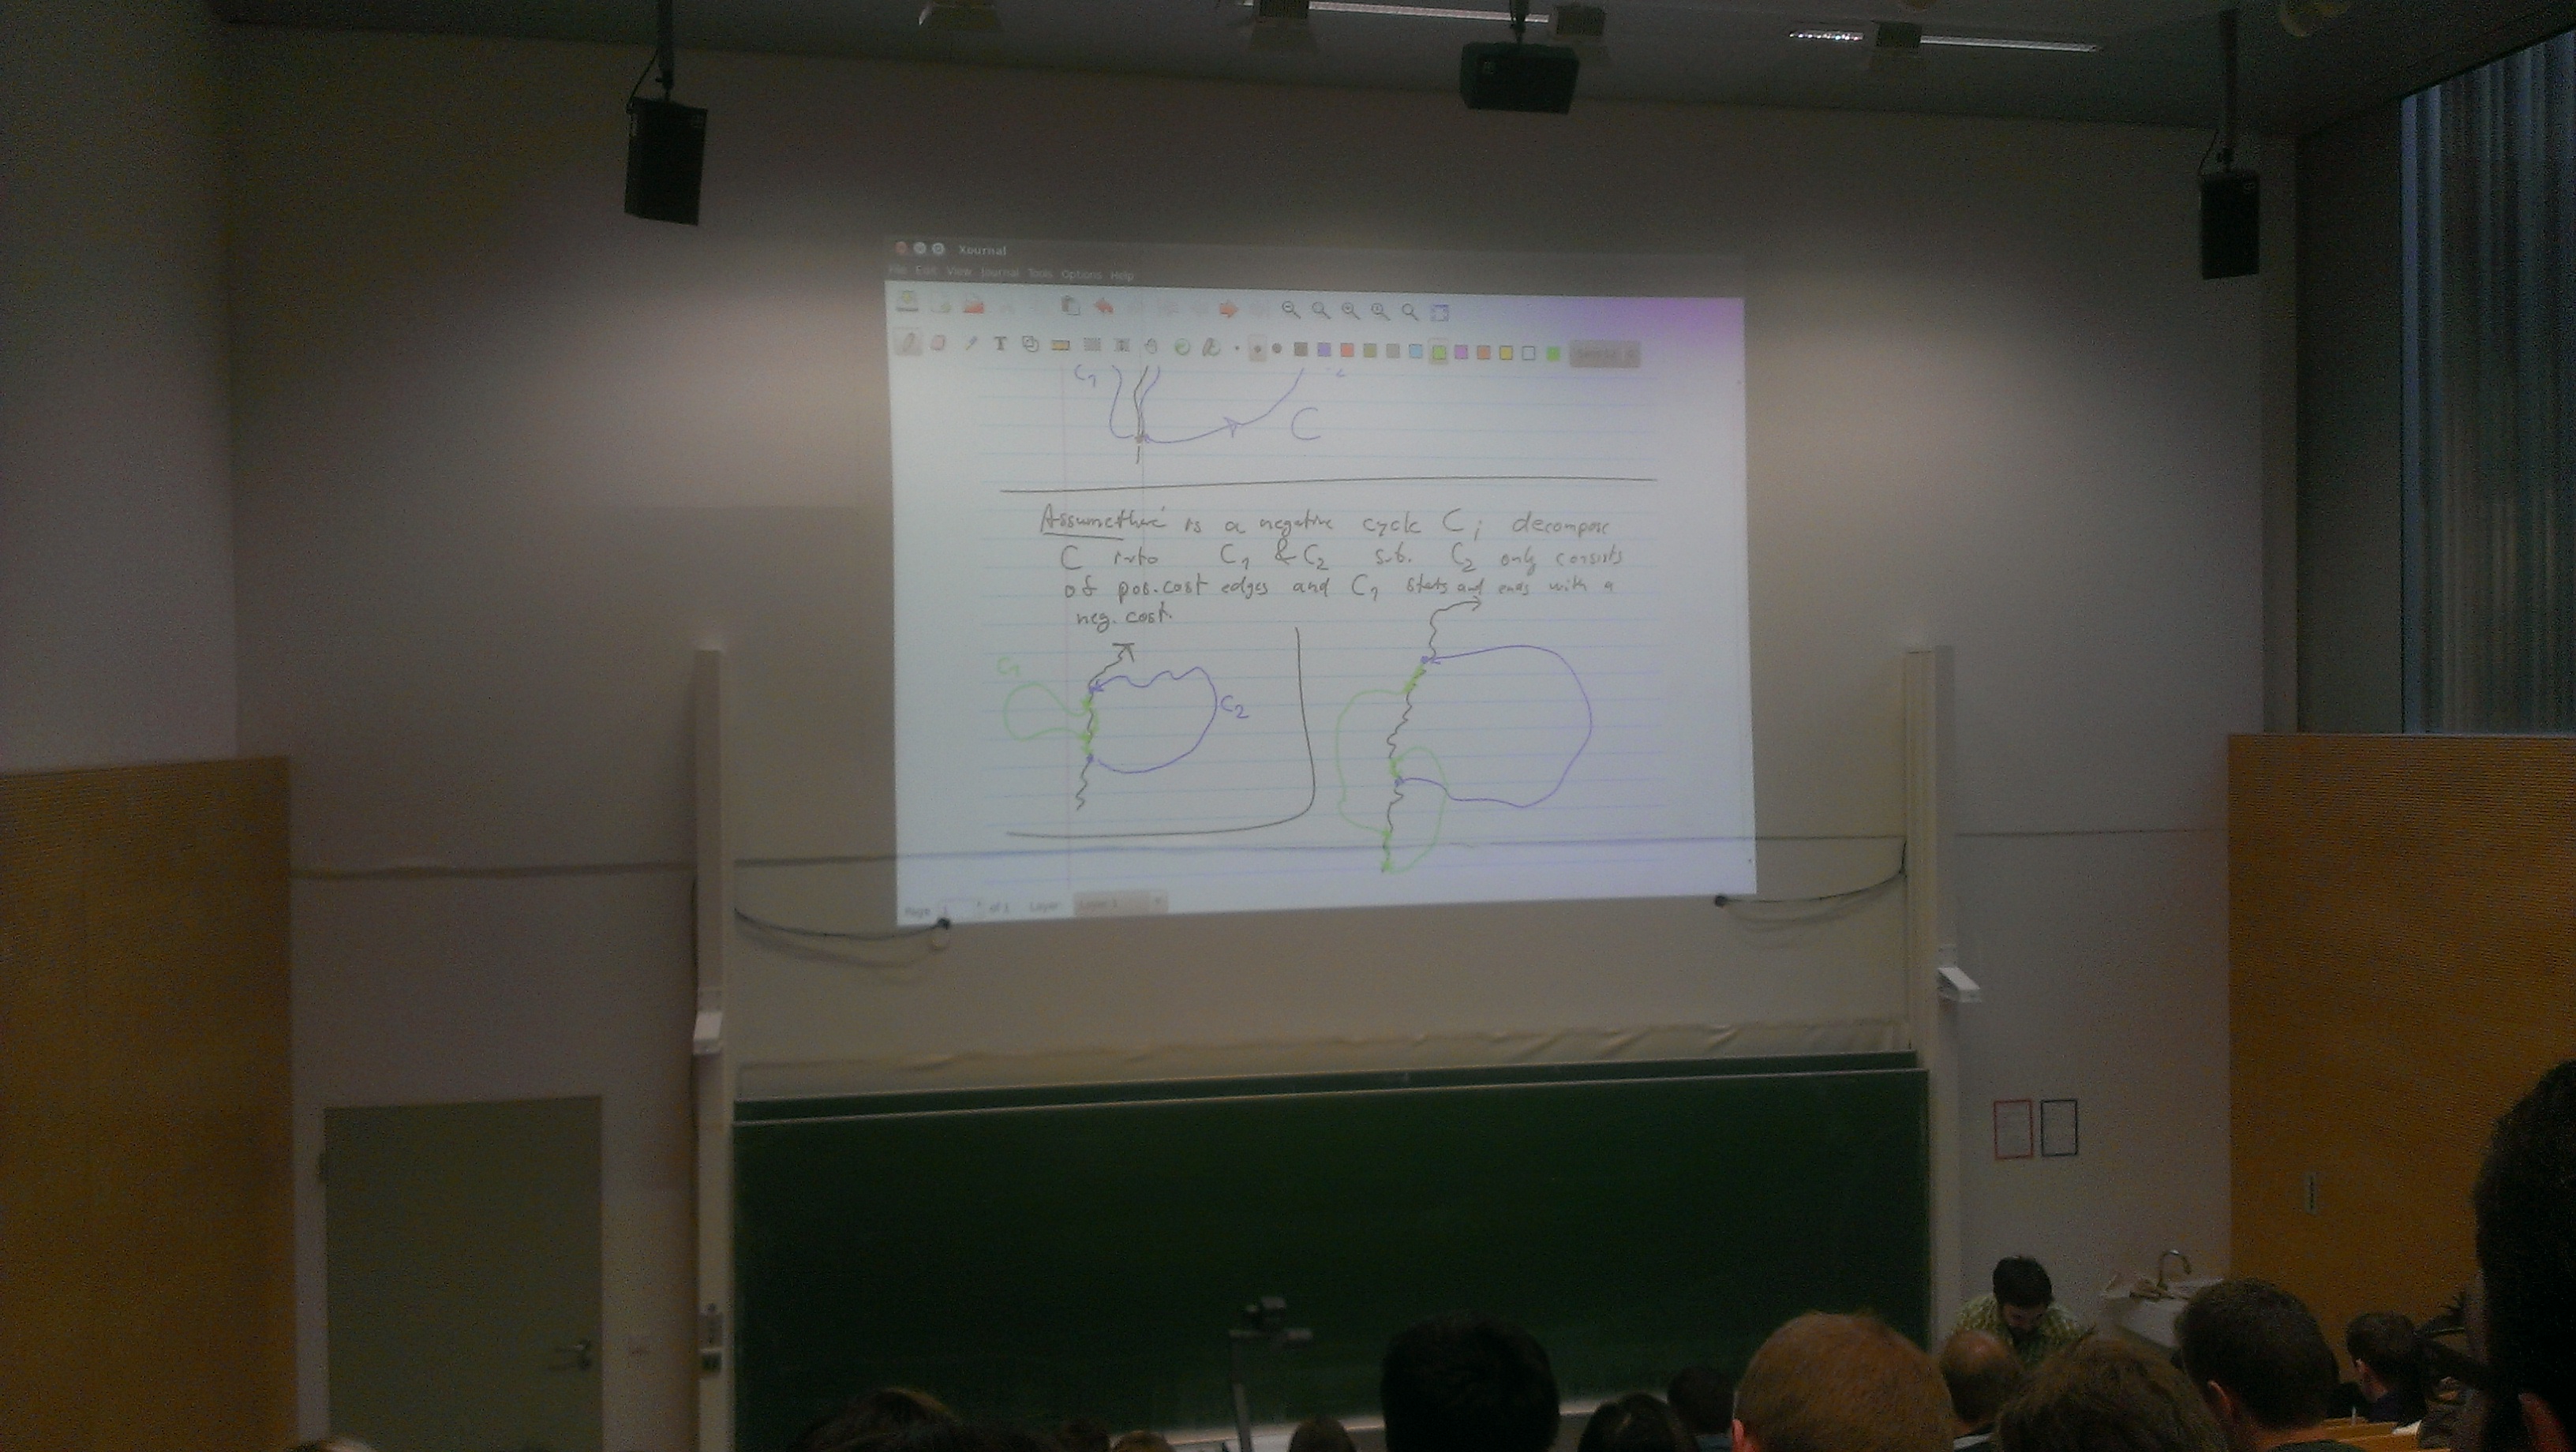 Xournal
File Edit View Journal Tools Options Help
T
C1
C
Assume there is a negative cycle C; decompose
C into C1 & C2 s.t. C2 only consists
of pos. cost edges and C1 starts and ends with a
neg. cost.
C1
C2
Page 1 of 1 Layer Layer 1